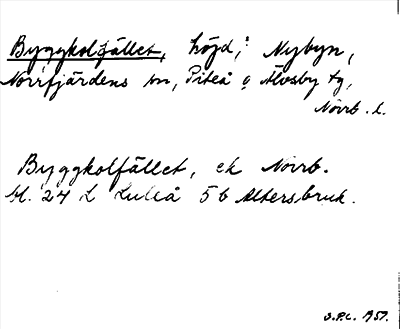 Byggkolfjället, höjd, i Nybyn,
Norrfjärdens sn, Piteå o Älvsby tg,
Norrb. l.
Byggkolfället, ek Norrb.
bl. 24 L Luleå 5b Altersbruk.
S.P.L. 1957.